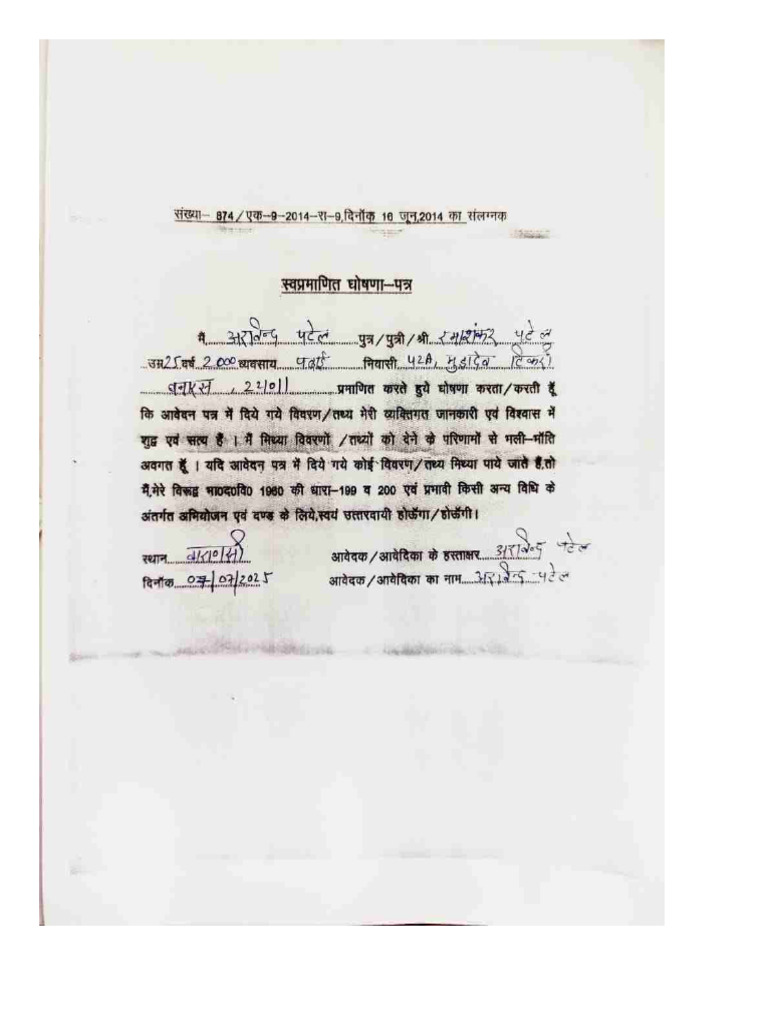 संख्या- 874/एक-9-2014-रा-9,दिनॉंक 16 जून,2014 का संलग्नक
स्वप्रमाणित घोषणा-पत्र
मैं, अरविन्द पटेल पुत्र/पुत्री/श्री रमाशंकर पटेल
उम्र 25 वर्ष 2000 व्यवसाय पढाई निवासी 42A, मुड़ादेव टिकरी
बनारस, 221011 प्रमाणित करते हुये घोषणा करता/करती हूँ
कि आवेदन पत्र में दिये गये विवरण/तथ्य मेरी व्यक्तिगत जानकारी एवं विश्वास में
शुद्व एवं सत्य हैं । मैं मिथ्या विवरणों /तथ्यों को देने के परिणामों से भली-भॉति
अवगत हूँ । यदि आवेदन पत्र में दिये गये कोई विवरण/तथ्य मिथ्या पाये जाते हैं,तो
मैं,मेरे विरूद्व भा0द0वि0 1960 की धारा-199 व 200 एवं प्रभावी किसी अन्य विधि के
अंतर्गत अभियोजन एवं दण्ड के लिये,स्वयं उत्तरदायी होऊँगा/होऊँगी।
स्थान वाराणसी आवेदक/आवेदिका के हस्ताक्षर अरविन्द पटेल
दिनॉंक 07/07/2025 आवेदक/आवेदिका का नाम अरविन्द पटेल